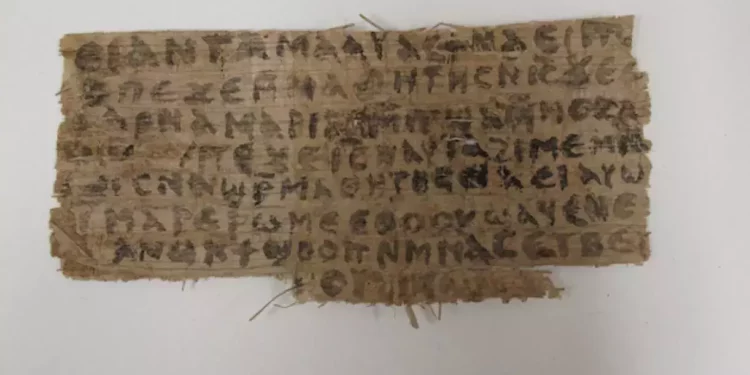 ⲉⲓ ⲁⲛ ⲧⲁⲙⲁⲁⲩ ⲁⲥϯ ⲛⲁⲉⲓ ⲡ
ⲡⲉϫⲉ ⲙⲙⲁⲑⲏⲧⲏⲥ ⲛⲓ̅ⲥ̅ ϫⲉ ⲥ
ⲁⲣⲛⲁ ⲙⲁⲣⲓⲁⲙ ⲙ̄ⲡϣⲁ ⲙ̄ⲙⲟⲥ ⲁ
ⲡⲉϫⲉ ⲓ̅ⲥ̅ ⲛⲁⲩ ⲧⲁϩⲓⲙⲉ ⲙⲛ̄
ⲥⲛⲁϣⲣ̄ⲙⲁⲑⲏⲧⲏⲥ ⲛⲁⲉⲓ ⲁⲩⲱ
ⲙⲁⲣⲉⲣⲱⲙⲉ ⲉⲑⲟⲟⲩ ϣⲁϥⲉ ⲛⲉ
ⲁⲛⲟⲕ ϯϣⲟⲟⲡ ⲛⲙ̄ⲙⲁⲥ ⲉⲧⲃⲉ
ⲟⲩϩⲓⲕⲱⲛ